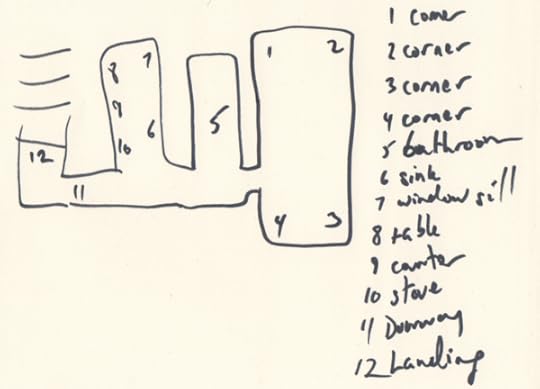 1 corner
2 corner
3 corner
4 corner
5 bathroom
6 sink
7 window sill
8 table
9 counter
10 stove
11 Doorway
12 Landing
1 2
8 7
9
10 6
5
12
11
4 3